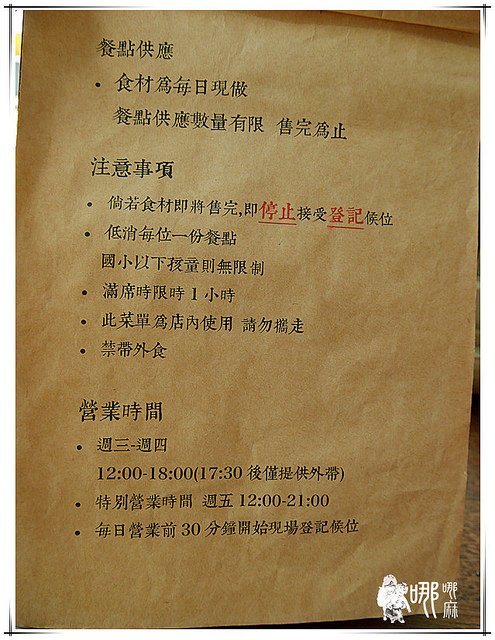 餐點供應
• 食材為每日現做
餐點供應數量有限 售完為止
注意事項
• 倘若食材即將售完,即停止接受登記候位
• 低消每位一份餐點
國小以下孩童則無限制
• 滿席時限時 1 小時
• 此菜單為店內使用 請勿攜走
• 禁帶外食
營業時間
• 週三-週四
12:00-18:00(17:30 後僅提供外帶)
• 特別營業時間 週五 12:00-21:00
• 每日營業前 30 分鐘開始現場登記候位
哪哪麻